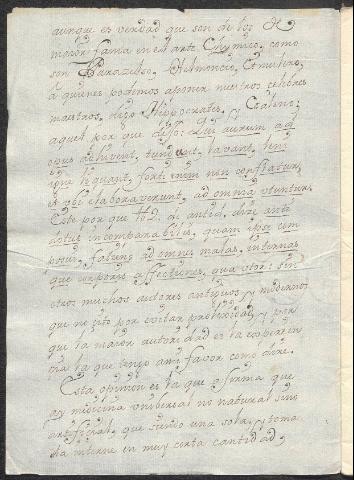 aunque es verdad que son de los de
maior fama en el arte Chymico, como
son Parazelso, Helmoncio, Etmulero,
a quienes podemos aponer nuestros celebres
maestros, digo Hipocrates, y Galeno;
aquel por que dijo: Qui aurum ad
opus adhivent, tundunt, lavant, leni
igne liquant, forti enim non conflatur,
et ubi elaboraverunt, ad omnia utuntur.
Este por que lib. 2. de antid. dize anti
dotus incomparabilis, quam ipse com
posui, faciens ad omnes malas, internas
que corporis affectiones, qua utor: sin
otros muchos autores antiguos y modernos
que no zito por evitar prolixidad, y por
que la maior autoridad es la experien
zia la que tengo a mi favor como dire.
Esta opinion es la que afirma que
ay medicina universal no natural sino
artificial, que siendo una sola, y toma
da interne en muy corta cantidad,